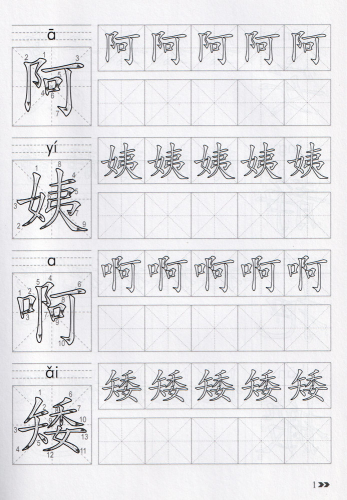 ā
阿 阿 阿 阿 阿 阿
yí
姨 姨 姨 姨 姨 姨
a
啊 啊 啊 啊 啊 啊
ǎi
矮 矮 矮 矮 矮 矮
1